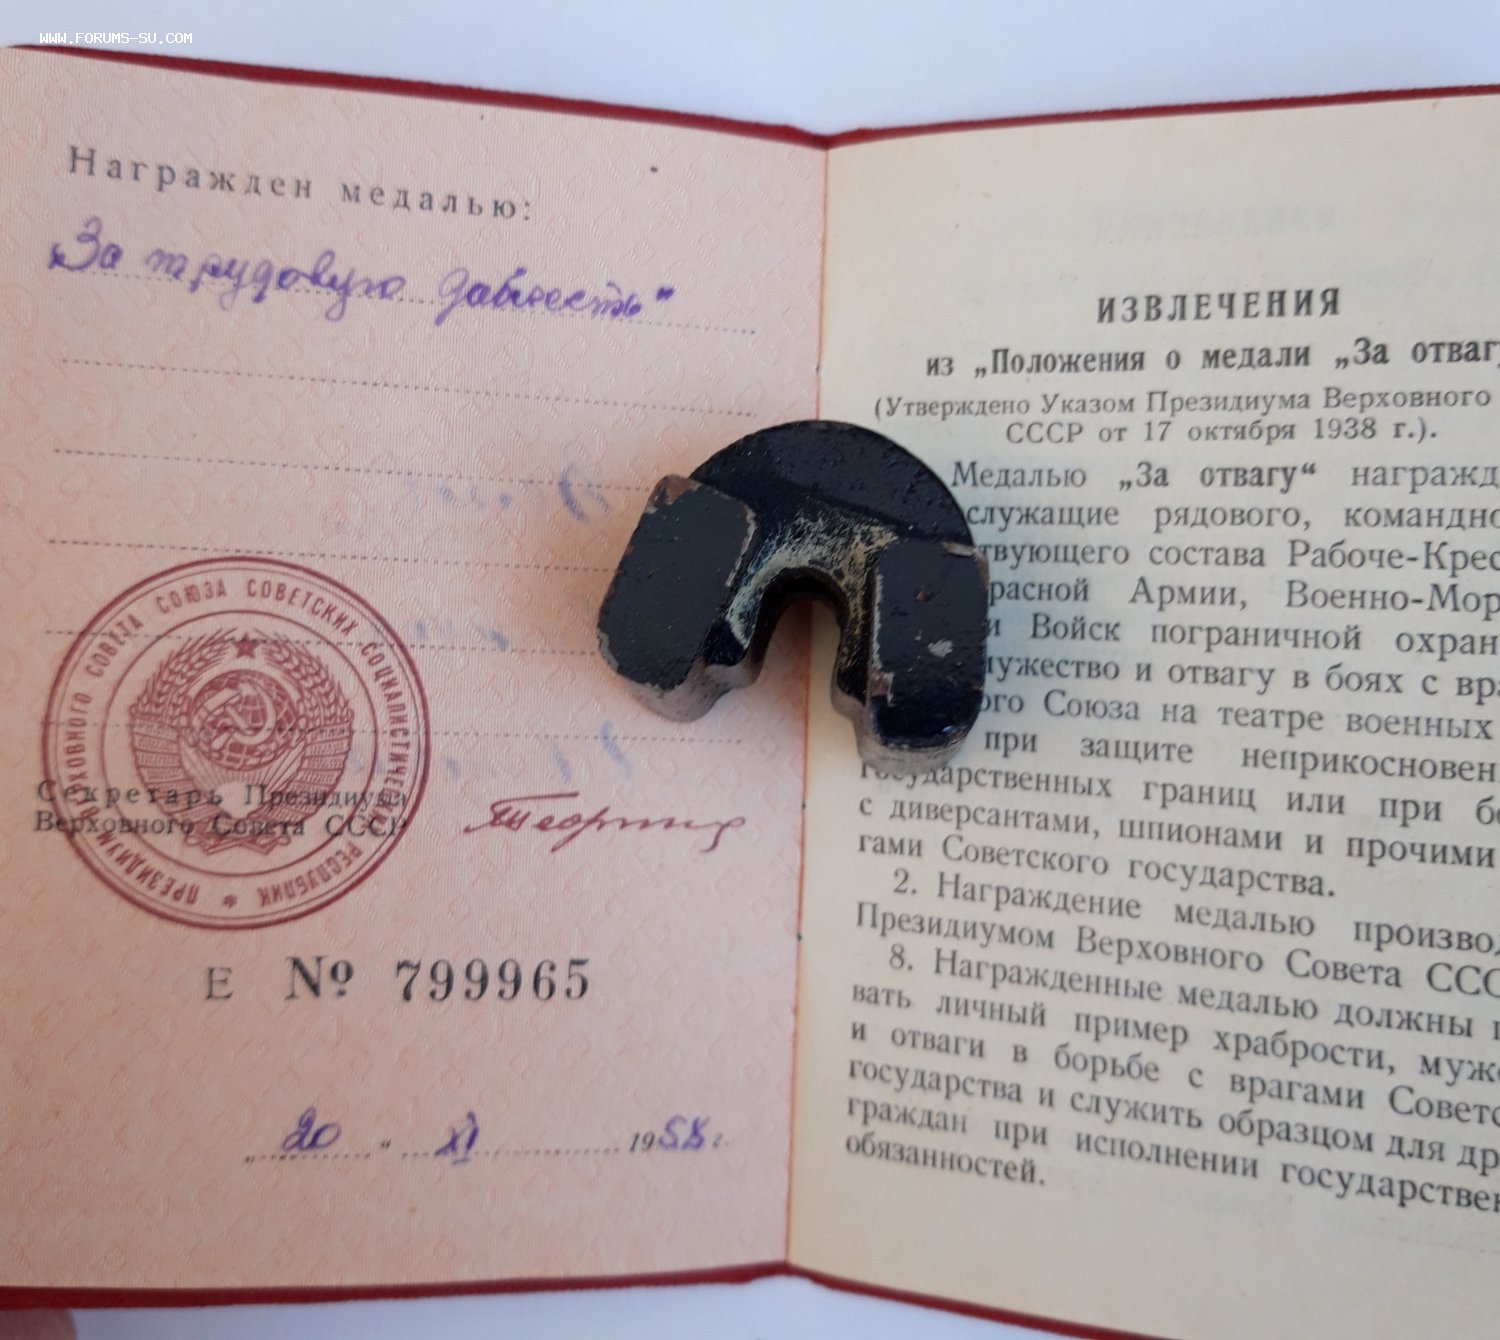 WWW.FORUMS-SU.COM
Награжден медалью:
„За трудовую доблесть"
ПРЕЗИДИУМ ВЕРХОВНОГО СОВЕТА СОЮЗА СОВЕТСКИХ СОЦИАЛИСТИЧЕСКИХ РЕСПУБЛИК *
Секретарь Президиума
Верховного Совета СССР
Е № 799965
„ 20 " XI 1958 г.
ИЗВЛЕЧЕНИЯ
из „Положения о медали „За отвагу
(Утверждено Указом Президиума Верховного
СССР от 17 октября 1938 г.).
Медалью „За отвагу“ награжд
служащие рядового, командно
твующего состава Рабоче-Крес
расной Армии, Военно-Мор
и Войск пограничной охран
мужество и отвагу в боях с вра
ого Союза на театре военных
при защите неприкосновен
государственных границ или при бо
с диверсантами, шпионами и прочими
гами Советского государства.
2. Награждение медалью производ
Президиумом Верховного Совета ССС
8. Награжденные медалью должны п
вать личный пример храбрости, муже
и отваги в борьбе с врагами Советс
государства и служить образцом для др
граждан при исполнении государствен
обязанностей.